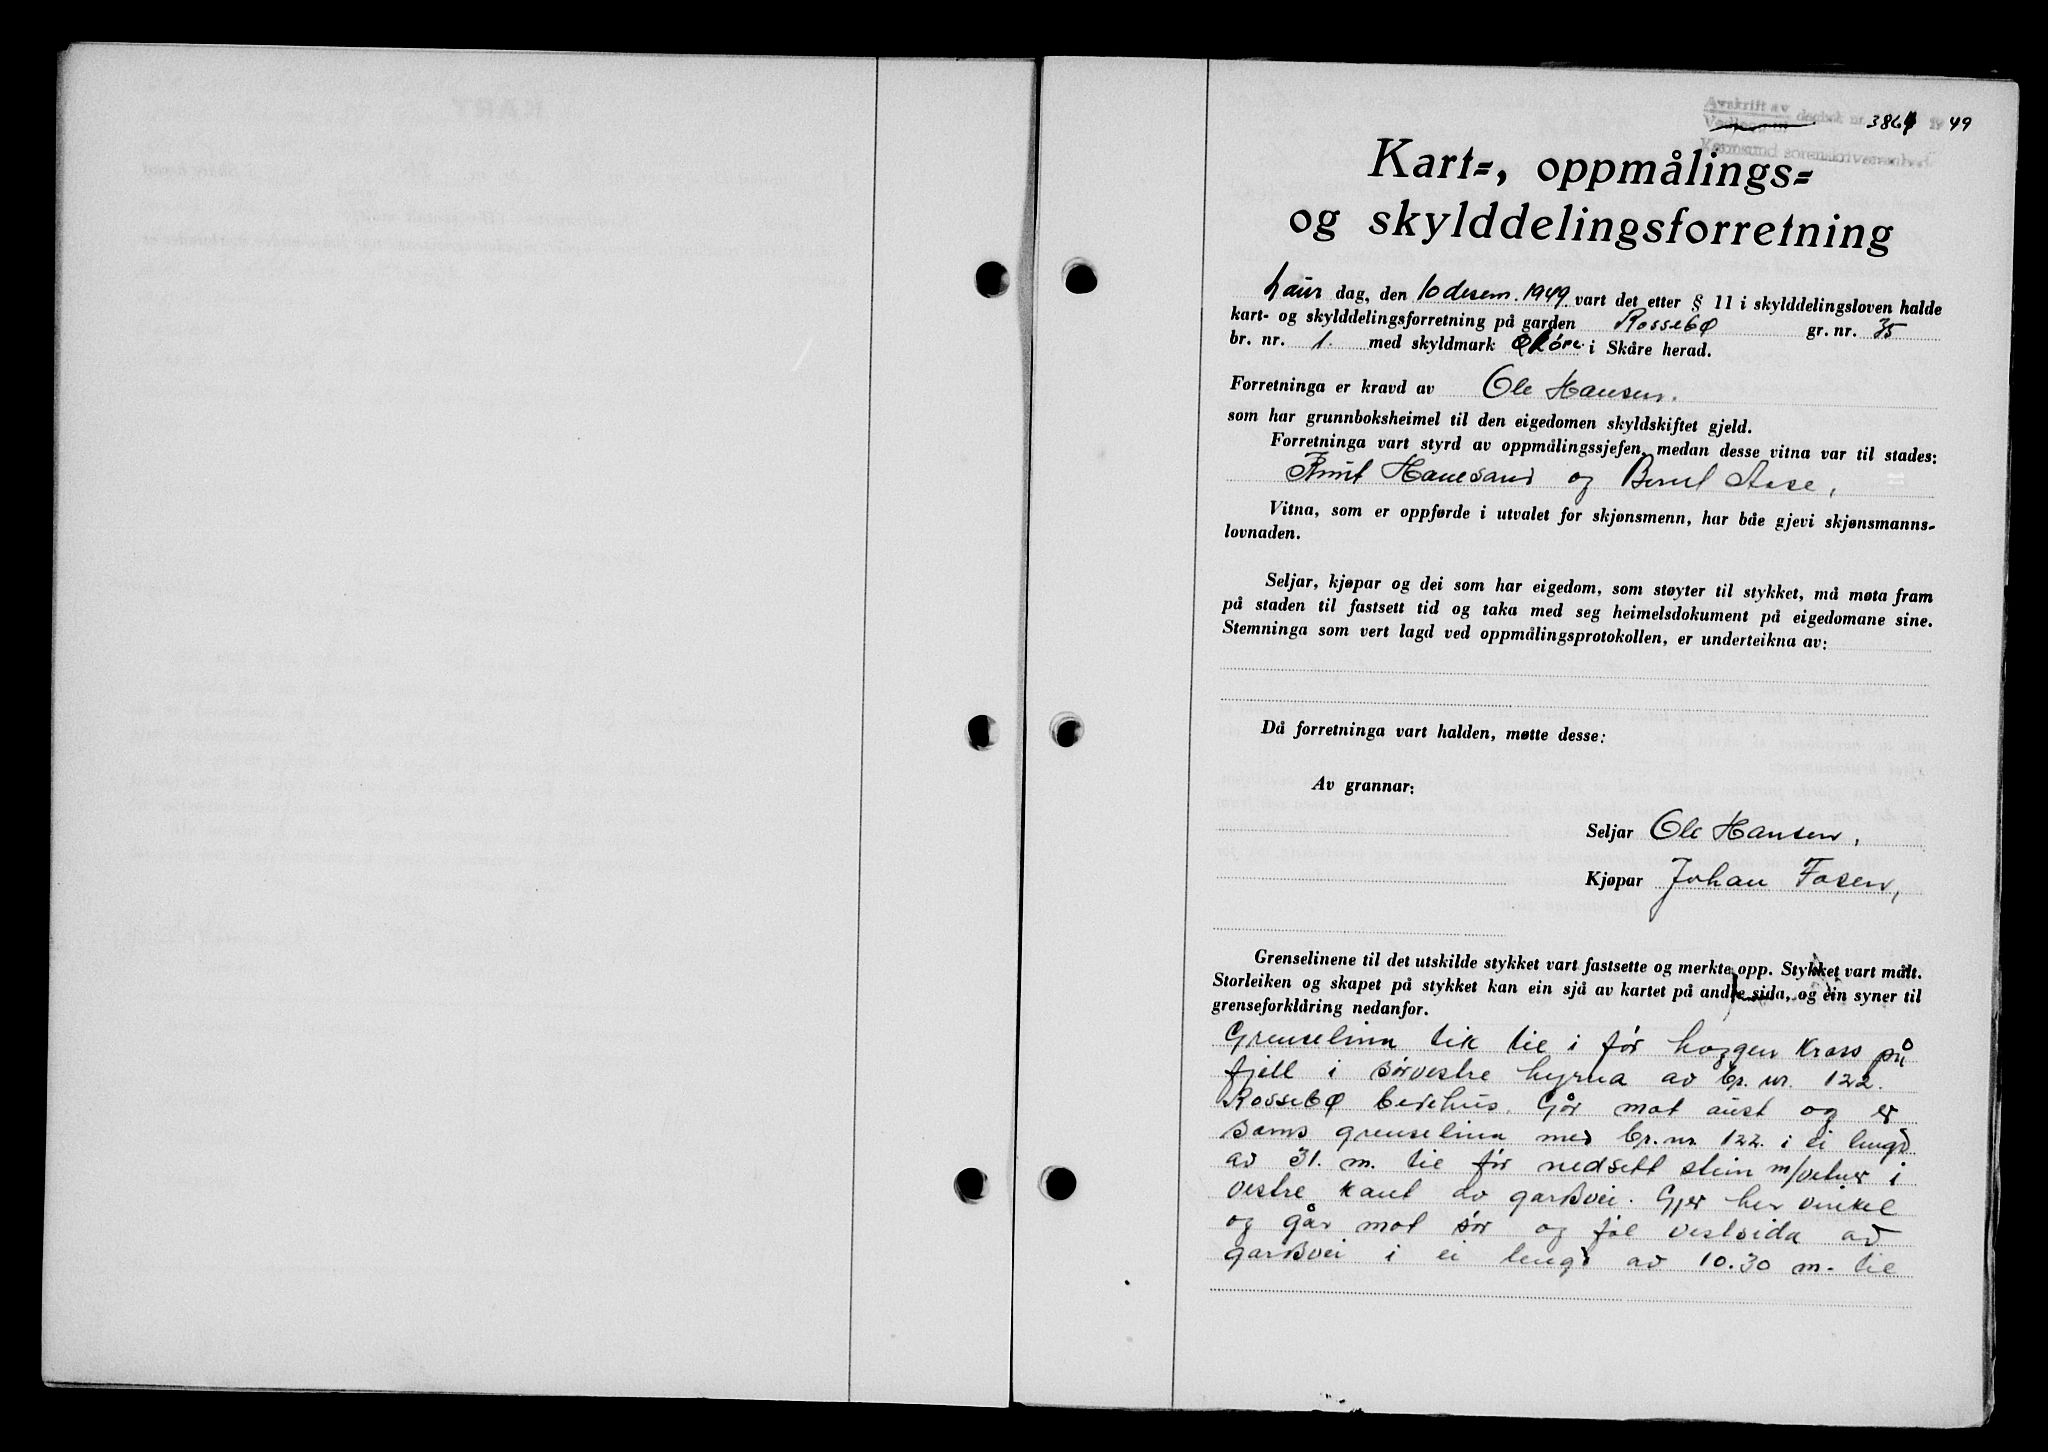 Avskrift av
Vedlegg til dagbok nr. 3864 19 49
Karmsund sorenskriverembete
Kart-, oppmålings-
og skylddelingsforretning
Laur dag, den 10 desem. 1949 vart det etter § 11 i skylddelingsloven halde
kart- og skylddelingsforretning på garden Rossebø gr. nr. 35
br. nr. 1. med skyldmark i Skåre herad.
Forretninga er kravd av Ole Hansen.
som har grunnboksheimel til den eigedomen skyldskiftet gjeld.
Forretninga vart styrd av oppmålingssjefen, medan desse vitna var til stades:
Knut Hanesand og Bernt Aase,
Vitna, som er oppførde i utvalet for skjønsmenn, har både gjevi skjønsmanns-
lovnaden.
Seljar, kjøpar og dei som har eigedom, som støyter til stykket, må møta fram
på staden til fastsett tid og taka med seg heimelsdokument på eigedomane sine.
Stemninga som vert lagd ved oppmålingsprotokollen, er underteikna av:
Då forretninga vart halden, møtte desse:
Av grannar:
Seljar Ole Hansen,
Kjøpar Johan Fosen,
Grenselinene til det utskilde stykket vart fastsette og merkte opp. Stykket vart målt.
Storleiken og skapet på stykket kan ein sjå av kartet på andre sida, og ein syner til
grenseforklåring nedanfor.
Grenselina tek til i før hoggen kross på
fjell i sørvestre hyrna av br. nr. 122.
Rossebø bedehus. Går mot aust og er
sams grenselina med br. nr. 122. i ei lengd
av 31. m. til før nedsett stein m/vetner i
vestre kant av gardsvei. Gjer her vinkel
og går mot sør og føl vestsida av
gardsvei i ei lengd av 10.30 m. til